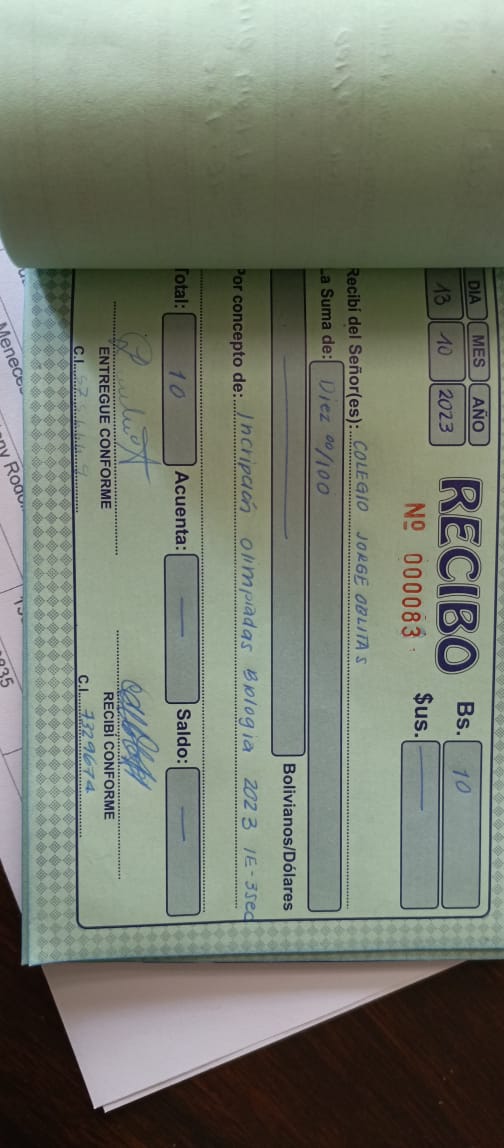 DIA MES AÑO
13 10 2023
RECIBO
Nº 000083
Bs. 10
$us. —
Recibí del Señor(es): COLEGIO JORGE OBLITAS
La Suma de: Diez 00/100
— Bolivianos/Dólares
Por concepto de: Incripción olimpiadas Biologia 2023 1E-3sec
Total: 10 Acuenta: — Saldo: —
ENTREGUE CONFORME
C.I.
RECIBÍ CONFORME
C.I. 7329674
Meneces